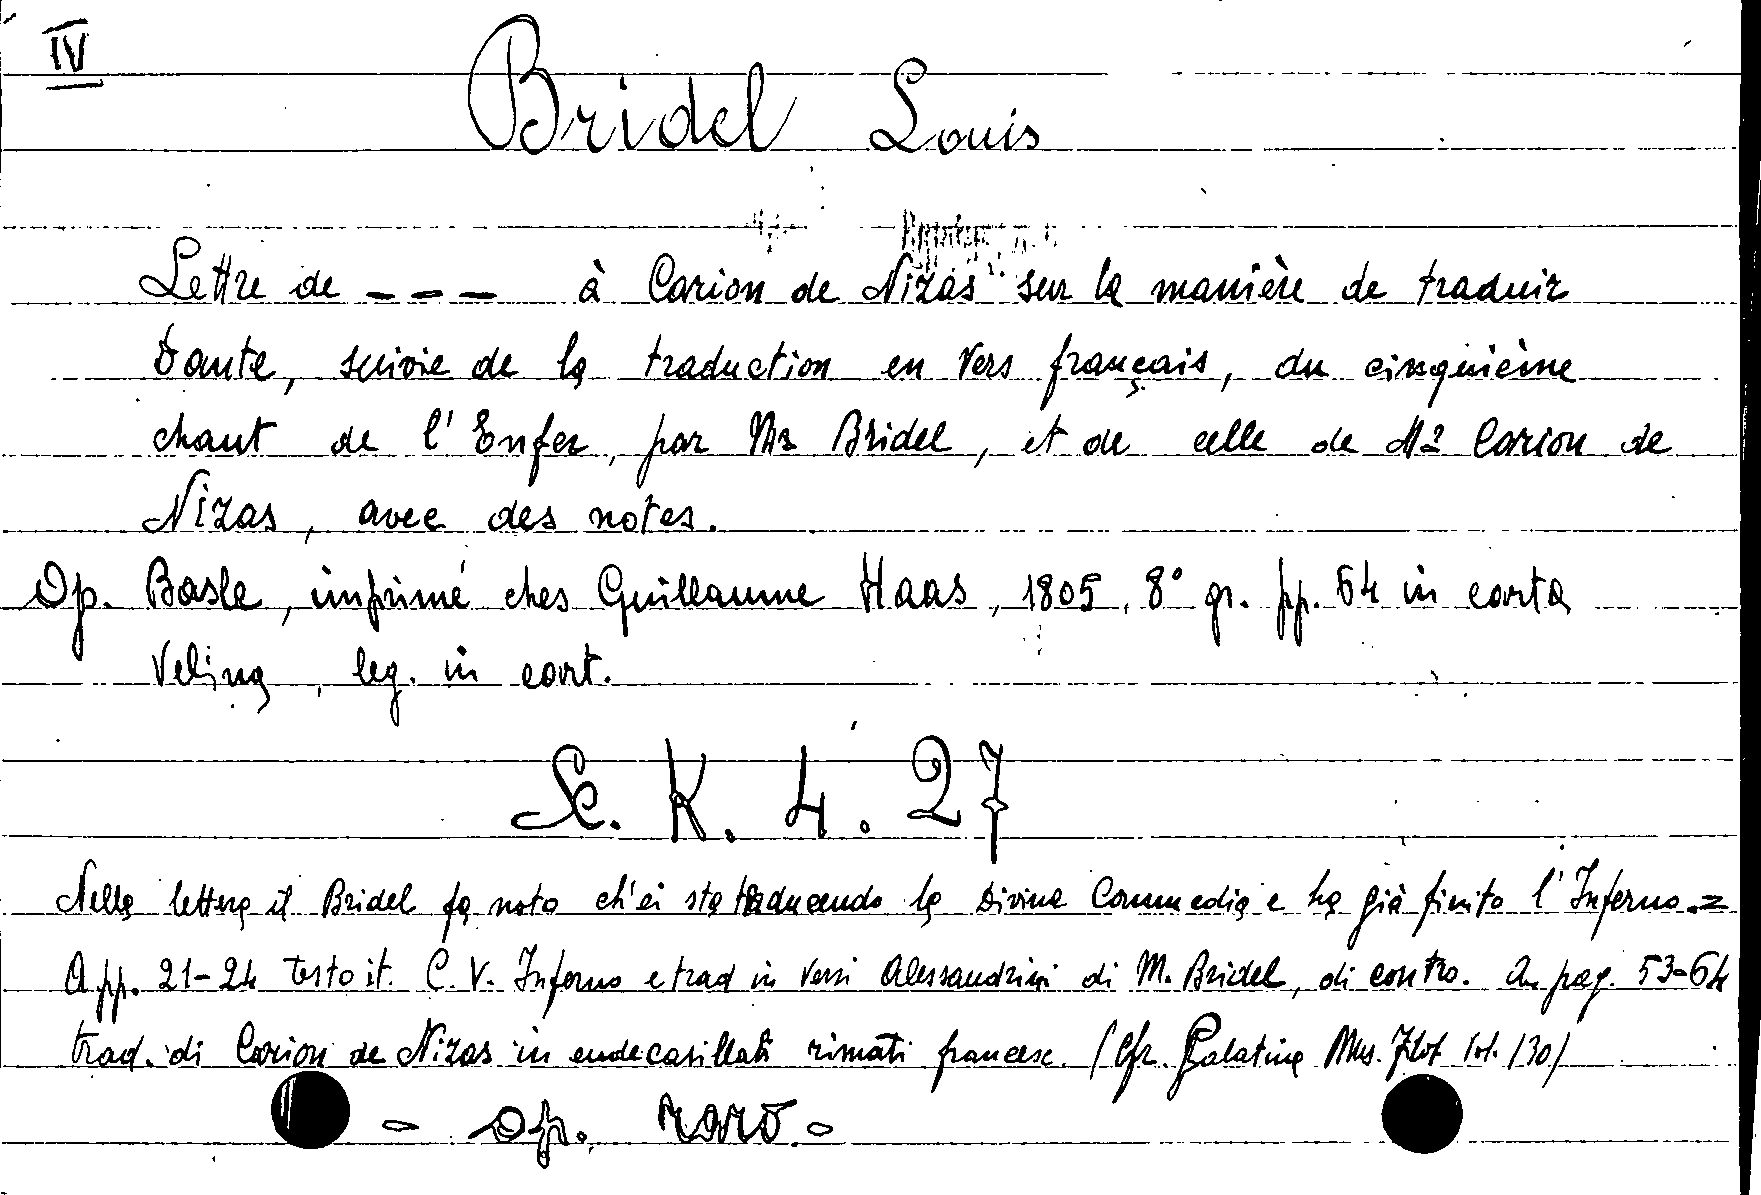 IV
Bridel Louis
Lettre de --- à Carion de Nizas sur la manière de traduir
Dante, suivie de la traduction en vers français, du cinquième
chant de l'Enfer, par Mr Bridel, et de celle de Mr Carion de
Nizas, avec des notes.
Op. Basle, imprimé ches Guillaume Haas, 1805, 8° gr. pp. 64 in carta
velina, leg. in cart.
K. 4. 27
Nella lettera il Bridel fa noto ch'ei sta traducendo la Divina Commedia e ha già finito l'Inferno.=
A pp. 21-24 testo it. C. V. Inferno e trad in versi Alessandrini di M. Bridel, di contro. A pag. 53-64
trad. di Carion de Nizas in endecasillabi rimati francese. (Cfr. Palatina Mss.
- Op. raro.-